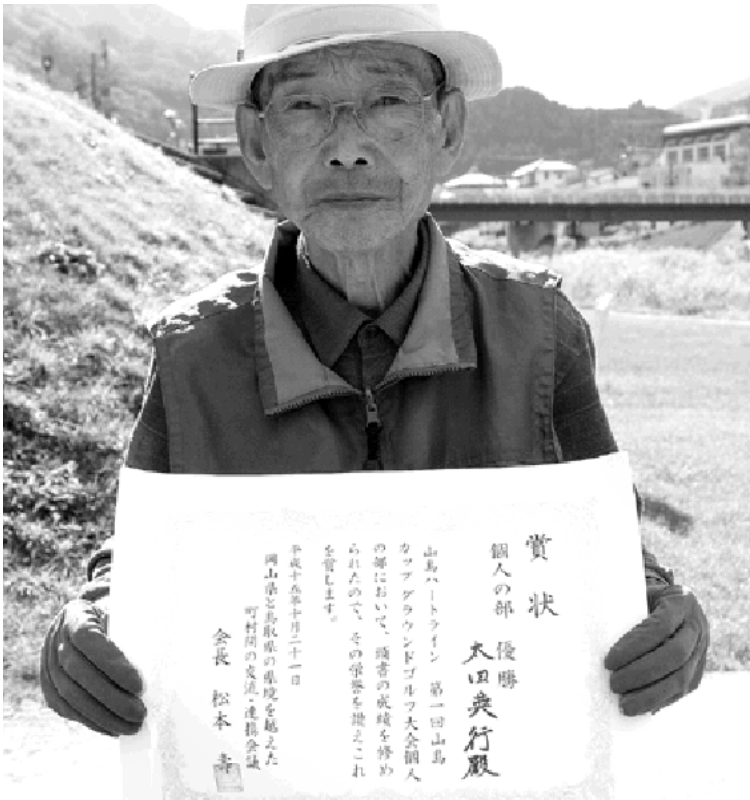 賞状
個人の部 優勝
太田典行殿
山鳥ハートライン 第一回山鳥
カップグラウンドゴルフ大会個人
の部において、頭書の成績を修め
られたので、その栄誉を讃えこれ
を賞します。
平成十五年十月二十一日
岡山県と鳥取県の県境を越えた
町村間の交流・連携会議
会長 松本 壽